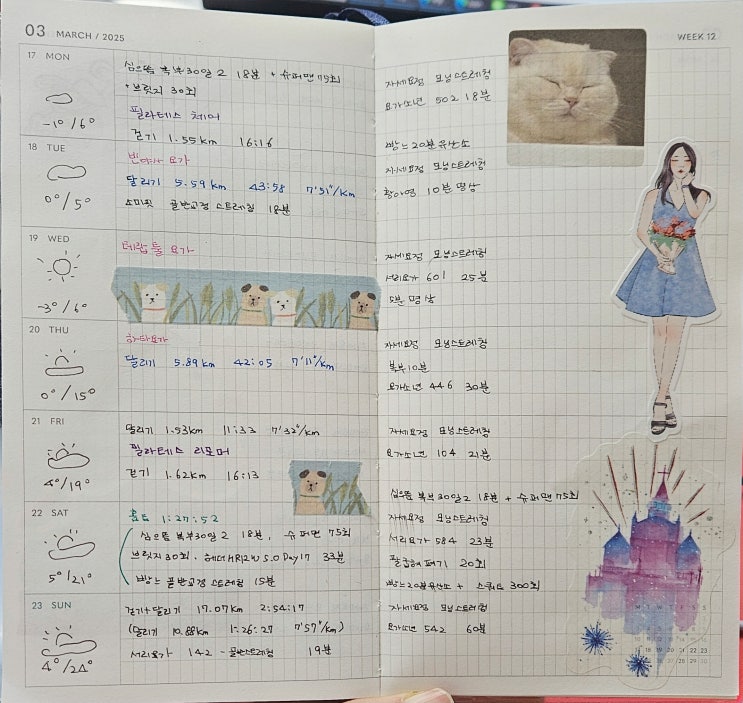 03 MARCH / 2025
WEEK 12
17 MON
-1° / 6°
심으뜸 복부30일2 18분 + 슈퍼맨 75회
+ 브릿지 30회
필라테스 체어
걷기 1.55km 16:16
자세요정 모닝스트레칭
요가소년 502 18분
18 TUE
0° / 5°
빈야사 요가
달리기 5.59km 43:58 7'51"/km
소미핏 골반교정 스트레칭 18분
빵느 20분 유산소
자세요정 모닝스트레칭
황아영 10분 명상
19 WED
-3° / 6°
테라 요가
자세요정 모닝스트레칭
서리요가 601 25분
5분 명상
20 THU
0° / 15°
하타요가
달리기 5.89km 42:05 7'11"/km
자세요정 모닝스트레칭
복부 10분
요가소년 446 30분
21 FRI
4° / 19°
달리기 1.53km 11:33 7'32"/km
필라테스 리포머
걷기 1.62km 16:13
자세요정 모닝스트레칭
요가소년 104 21분
22 SAT
5° / 21°
홈트 1:27:52
심으뜸 복부30일2 18분, 슈퍼맨 75회
브릿지 30회, 헤더HR12W 5.0 Day17 33분
빵느 골반교정 스트레칭 15분
심으뜸 복부30일2 18분 + 슈퍼맨 75회
자세요정 모닝스트레칭
서리요가 584 23분
팔굽혀펴기 20회
빵느 20분유산소 + 스쿼트 300회
23 SUN
4° / 24°
걷기+달리기 17.07km 2:54:17
(달리기 10.88km 1:26:27 7'57"/km)
서리요가 142 - 골반스트레칭 19분
자세요정 모닝스트레칭
요가소년 542 60분
M T W T F S S
17 18 19 20 21 22 23